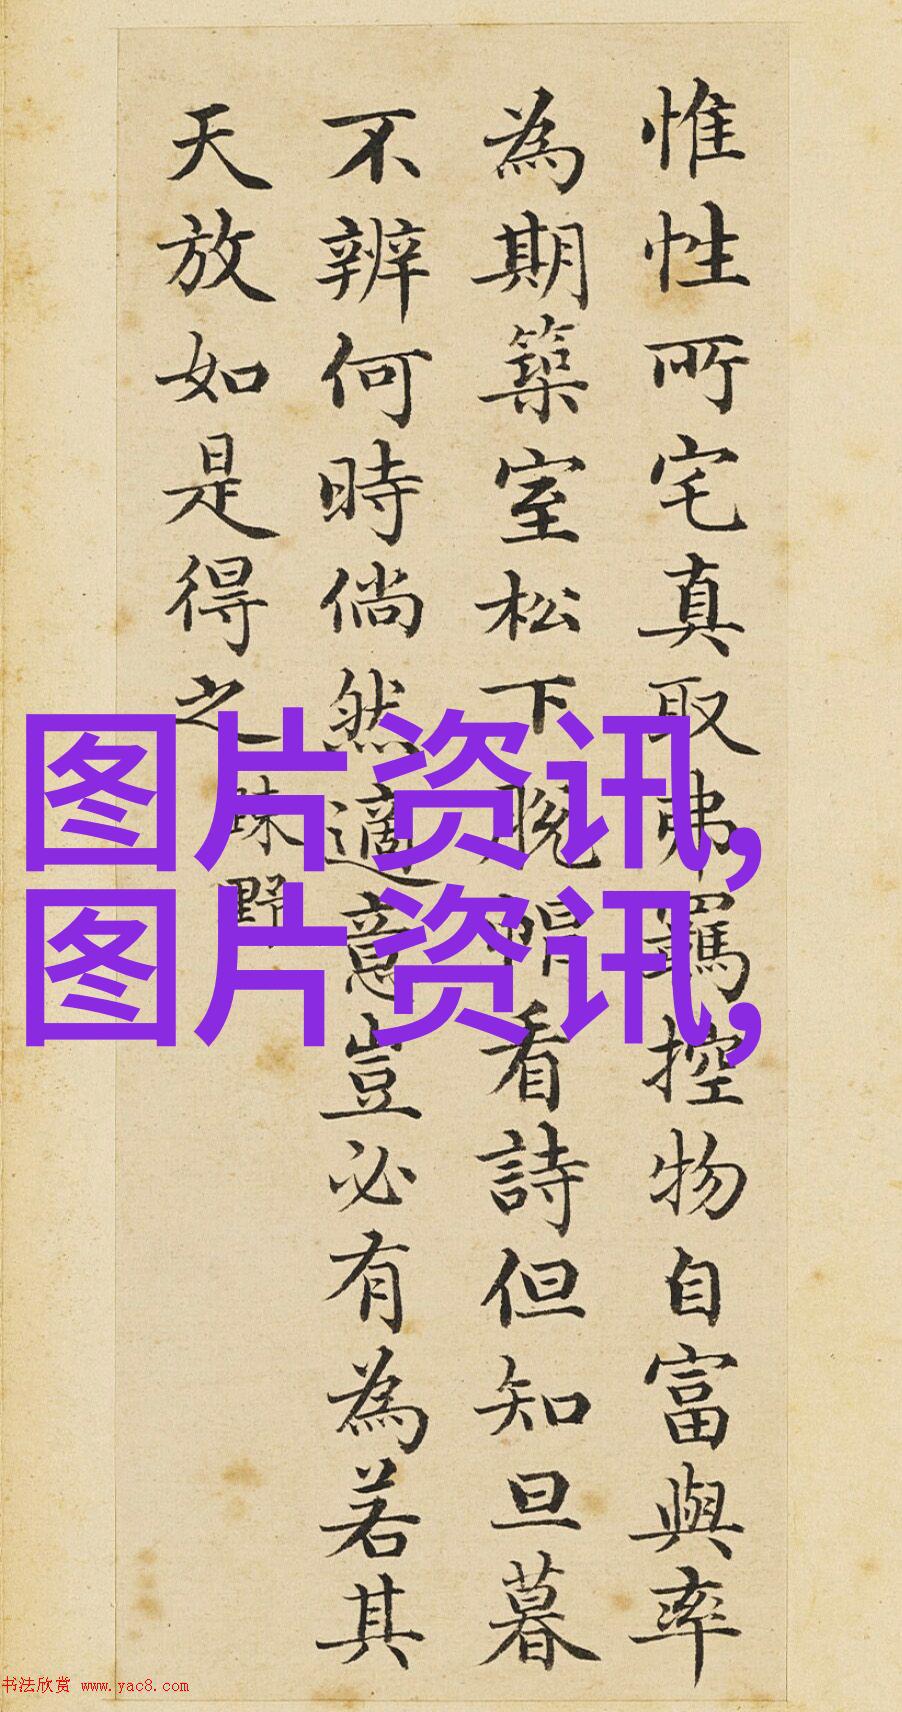 惟性所宅真取弗羈控物自富與率
為期築室松下脫帽看詩但知旦暮
不辨何時倘然適意豈必有為若其
天放如是得之
踈野
图片资讯,
图片资讯,
书法欣赏 www.yac8.com